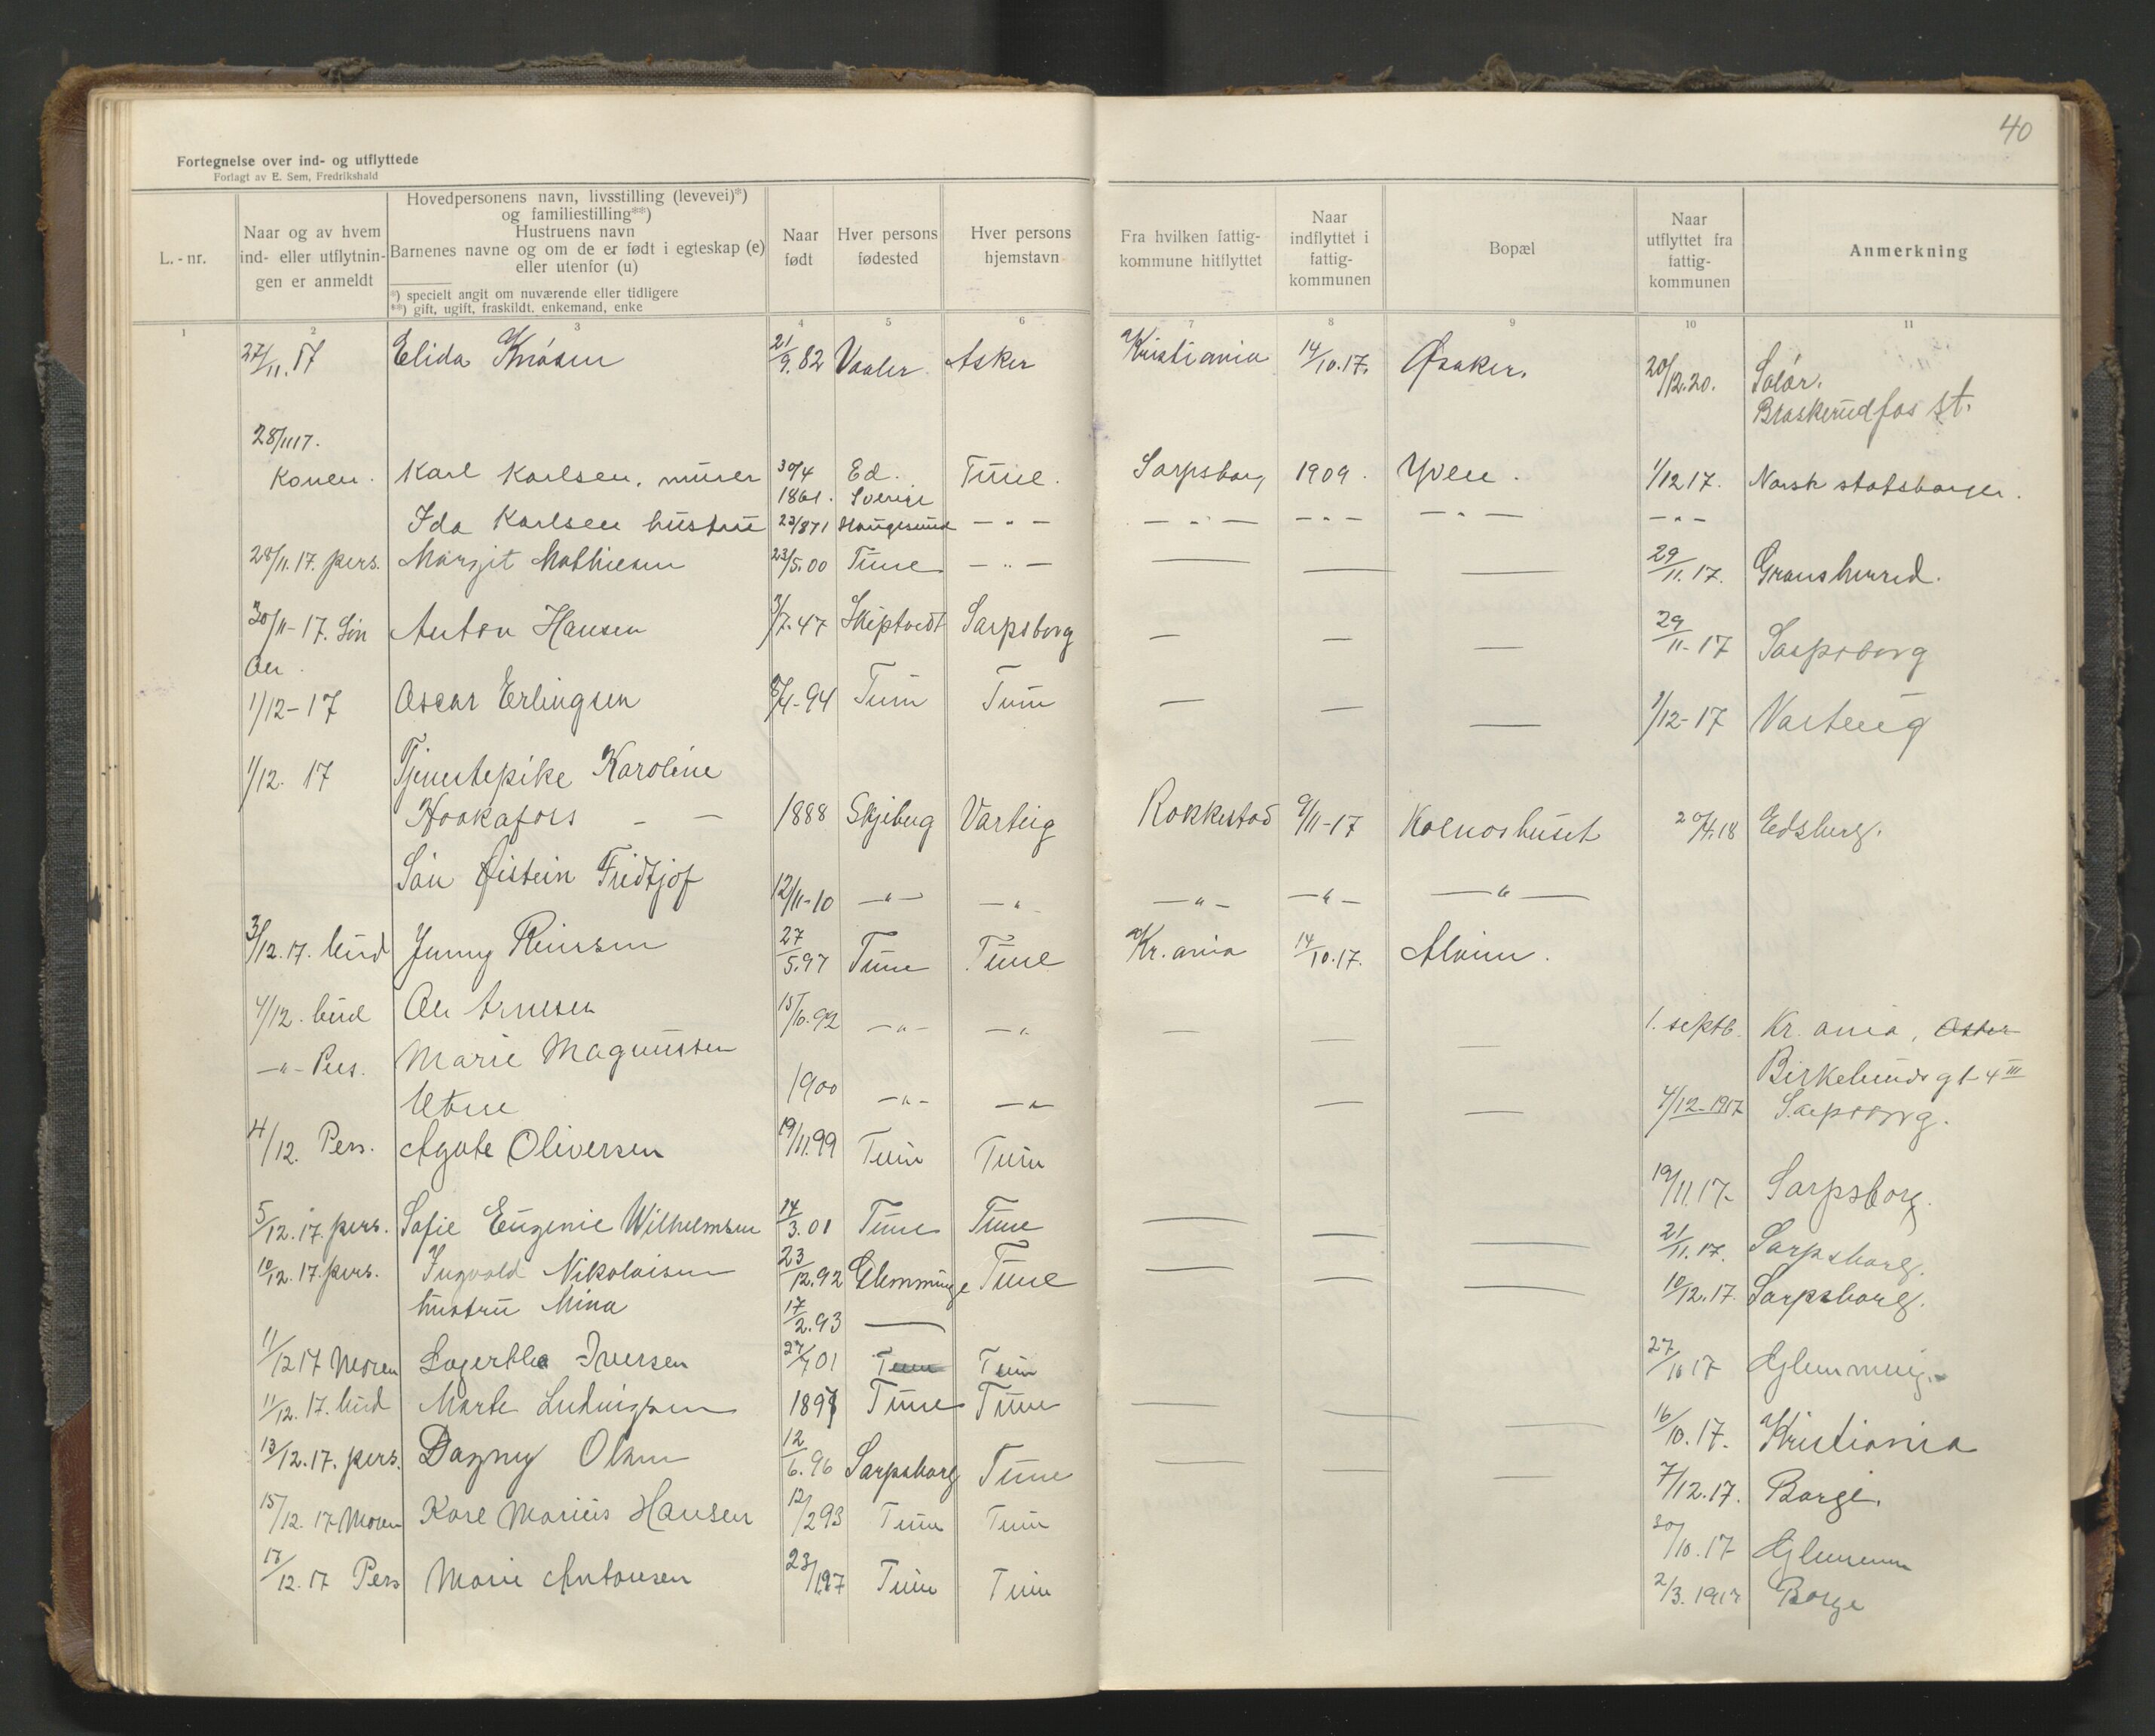 40
Fortegnelse over ind- og utflyttede
Forlagt av E. Sem, Fredrikshald
L.-nr.
Naar og av hvem
ind- eller utflytnin-
gen er anmeldt
Hovedpersonens navn, livsstilling (levevei)*)
og familiestilling**)
Hustruens navn
Barnenes navne og om de er født i egteskap (e)
eller utenfor (u)
*) specielt angit om nuværende eller tidligere
**) gift, ugift, fraskildt, enkemand, enke
Naar
født
Hver persons
fødested
Hver persons
hjemstavn
Fra hvilken fattig-
kommune hitflyttet
Naar
indflyttet i
fattig-
kommunen
Bopæl
Naar
utflyttet fra
fattig-
kommunen
Anmerkning
1 2 3 4 5 6 7 8 9 10 11
27/11.17 Elida 21/9.82 Vaaler Asker Kristiania 14/10.17. Øraker. 20/12.20. Solør.
Braskerudfos st.
28/11 17.
Konen. Karl Karlsen, murer 30/4 1861. Ed. Sverige Tune. Sarpsborg 1909. Yven. 1/12 17. Norsk statsborger.
Ida Karlsen hustru 23/871 Haugesund — " — — " — — " — — " — — " —
28/11.17. pers. Margit Mathiesen 23/5.00 Tune — " — — — — 29/11.17. Gransherred.
30/11-17. Søn Anton Hansen 3/7.47 Skiptvedt Sarpsborg — — — 29/11-17 Sarpsborg
1/12-17 Oscar Erlingsen 8/4-94 Tune Tune — — — 1/12-17 Varteig
1/12. 17 Tjenestepike Karoline
Hookafors — — 1888 Skjeberg Varteig Rokkestad 9/11-17 Kolnoshuset 20/4.18 Edsberg.
Søn Øistein Fridtjof 12/11-10 — " — — " — — " — — " — — " —
3/12.17. bud Jenny Reiersen 27/5.97 Tune Tune Kr.ania 14/10.17. Alvim.
4/12. bud Ole Arnesen 15/10.92 — " — — " — — — 1. septb. Kr. ania, Oster
Birkelunds gt 4 III
— " — Pers. Marie Magnussen
Utne 1900 — " — — " — — 4/12-1917 Sarpsborg.
4/12. Pers. Agate Oliversen 19/11.99 Tune Tune 19/11 17- Sarpsborg.
5/12.17. pers. Sofie Eugenie Wilhelmsen 14/3.01 Tune Tune — — — 21/11.17. Sarpsborg.
10/12.17. pers. Ingvald Nikolaisen 23/12.92 Glemminge Tune — — — 10/12.17. Sarpsborg.
hustru Mina 17/2.93 —
11/12 17 Moren Lagertha Iversen 27/7 01 Tune Tune 27/10 17 Glemming.
11/12.17. bud Marte Ludvigsen 1897 Tune Tune — — — 16/10.17. Kristiania
13/12.17. pers. Dagny Olsen 12/6.96 Sarpsborg Tune — — — 7/12.17. Borge.
15/12.17 Moren Kare Marius Hansen 12/2 93 Tune Tune 30/10.17 Glemmen
17/12.17 Pers Marie Antonsen 23/1 97 Tune Tune 2/3.1917 Borge